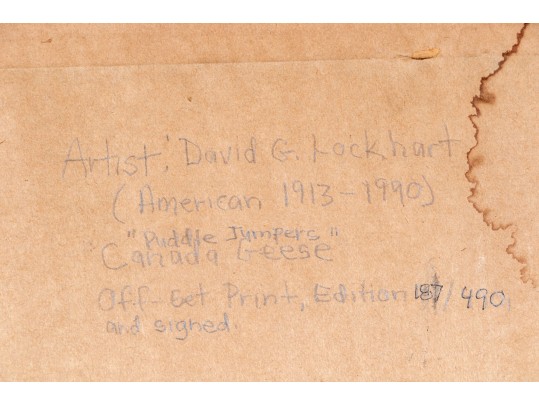 Artist: David G. Lockhart
(American 1913-1990)
"Puddle Jumpers"
Canada Geese
Off-Set Print, Edition 187/490
and signed.